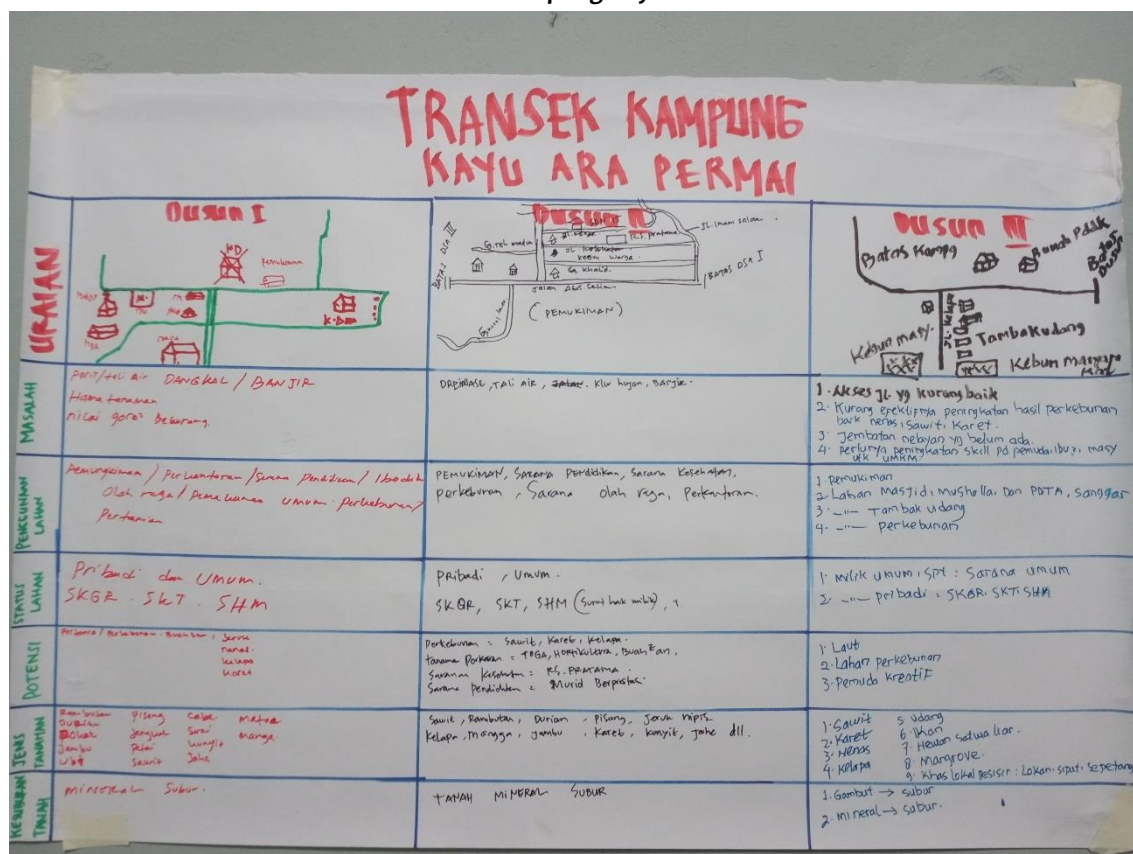 TRANSEK KAMPUNG
KAYU ARA PERMAI
URAIAN
Dusun I
KD
Pemakaman
Dusun II
BATAS DSN III
JL. Imam Salan
R.S. Pratama
JL Kesehatan
Kebun warga
Gg Khalid
Jalan Abd. Salim
BATAS DSN I
(PEMUKIMAN)
Dusun III
Batas Kampg
Batas Dusun
Kebun masy.
JL. Kelapa
Tambak udang
Kebun
MASALAH
Parit/tali Air DANGKAL / BANJIR
Hama tanaman
nilai
DREINASE, TALI AIR, Klw hujan, BANJIR.
1. Akses JL yg kurang baik
2. Kurang epektipnya peningkatan hasil perkebunan
baik nenas, Sawit, Karet.
3. Jembatan nelayan yg belum ada.
4. perlunya peningkatan skill pd pemuda, ibu2, masy
utk UMKM
PENGGUNAAN LAHAN
Pemungkiman / Perkantoran / Sarana Pendidikan / Ibadah
Olah raga / Pemakaman umum. Perkebunan/
Pertanian
PEMUKIMAN, Sarana Pendidikan, Sarana Kesehatan,
perkebunan, Sarana olah raga, Perkantoran.
1 Pemukiman
2. Lahan Masjid, Musholla, Dan PDTA, Sanggar
3. -"- Tambak udang
4. -"- perkebunan
STATUS LAHAN
Pribadi dan Umum.
SKGR. SKT. SHM
pribadi, Umum.
SKGR, SKT, SHM (Surat hak milik),
1. Milik umum, spt: Sarana umum
2. -"- pribadi: SKGR. SKT. SHM
POTENSI
Jeruk
nanas
kelapa
karet
Perkebunan: Sawit, Karet, Kelapa.
TOGA, HORTIKULTURA, Buah2an.
Saranan Kesehatan: RS. PRATAMA.
Sarana Pendidikan: Murid Berprestasi
1. Laut
2. Lahan perkebunan
3. Pemuda kreatif
JENIS TANAMAN
Rambutan Pisang Cabe Matoa
Durian Jengkol Serai Mangga
Pokat Petai Kunyit
Jambu Sawit Jahe
Ubi
Sawit, Rambutan, Durian, Pisang, Jeruk nipis,
Kelapa, Mangga, Jambu, Karet, Kunyit, Jahe dll.
1. Sawit 5. udang
2. Karet 6. Ikan
3. Nenas 7. Hewan satwa liar.
4. Kelapa 8. Mangrove.
9. Khas lokal pesisir: Lokan, siput, Sepetang
KESUBURAN TANAH
mineral Subur.
TANAH MINERAL SUBUR
1. Gambut → subur
2. mineral → subur.